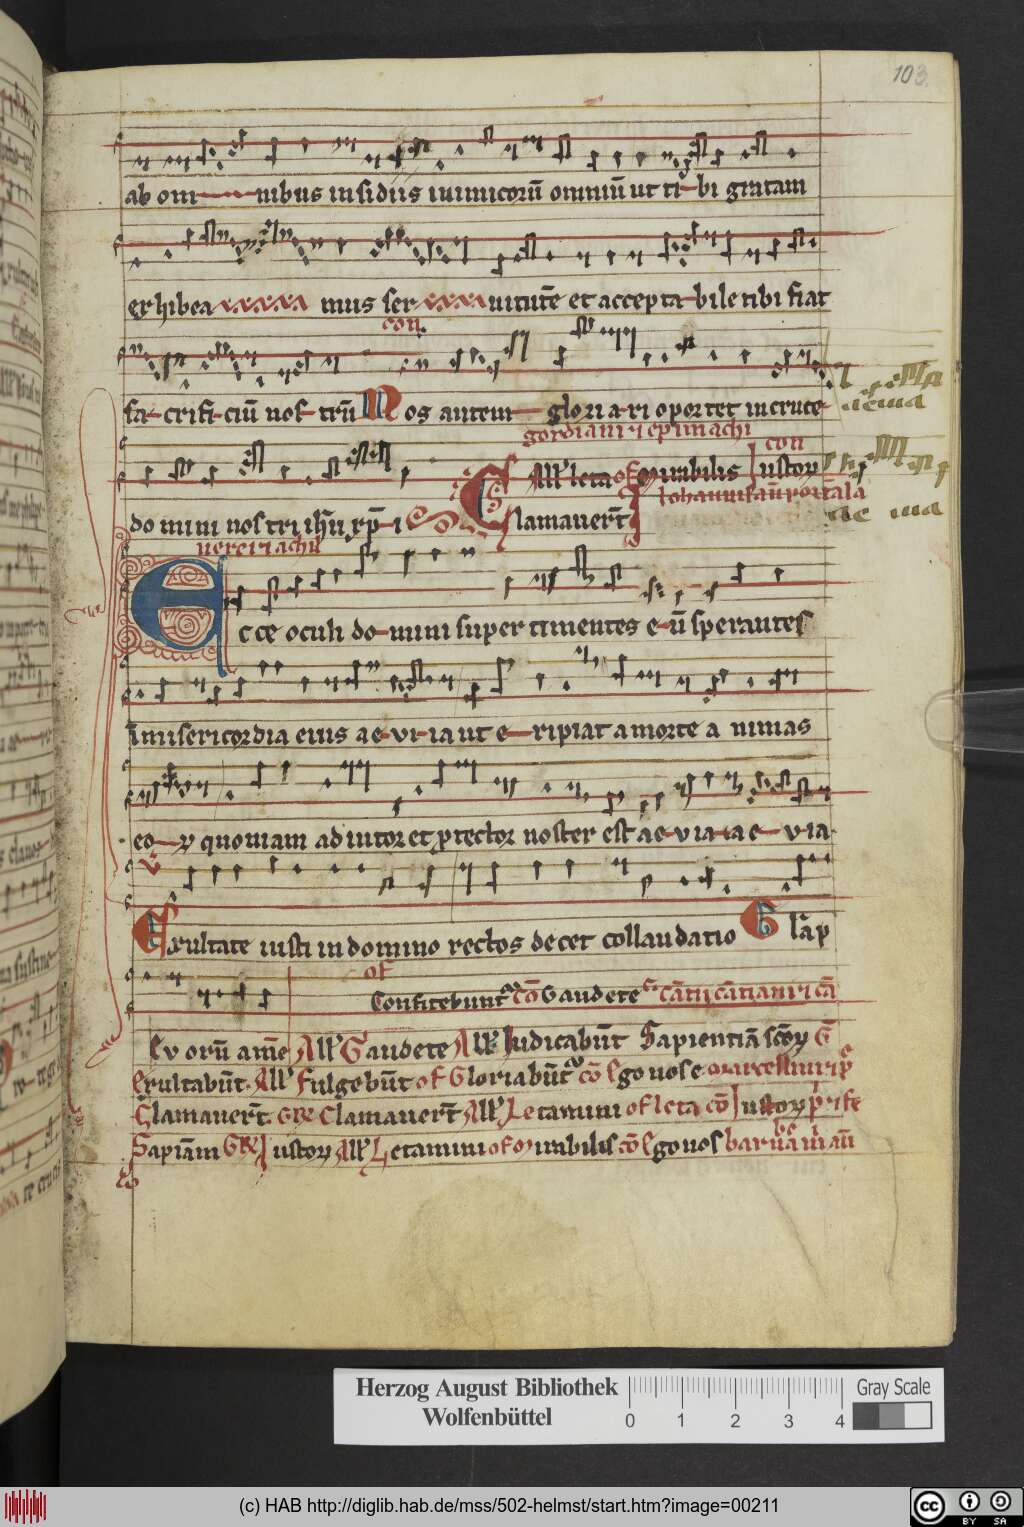 103
ab om nibus insidiis inimicorū omniū ut ti bi gratam
exhibea mus ser vitutē et accepta bile tibi fiat
con
sa crifi ciū nos trū Nos autem glori a ri oportet in cruce
gordiani et epimachi
con
do mini nostri ihū xp̄ i Clamauert̄ All' leta of Mirabilis Iustoꝝ
nerei et achil
Ecce oculi do mini super timentes e ū sperantes
in misericordia eius ae vi ia ut e ripiat a morte a nimas
eo ꝝ quoniam adiutor et ꝓtector noster est ae via ae via
Exultate iusti in domino rectos decet collaudatio E
of
Confitebunt cō Gaudete
Ev orū am̄e All' Gaudete All' Iudicabūt Sapientiā scōꝝ
Exultabūt All' Fulgebūt of Gloriabūt cō Ego vos e
Clamauert̄ Clamauert̄ All' Letamini of leta cō Iustoꝝ
Sapiām Iustoꝝ All' Letamini of Mirabilis cō Ego vos
Herzog August Bibliothek
Wolfenbüttel
0 1 2 3 4
Gray Scale
(c) HAB http://diglib.hab.de/mss/502-helmst/start.htm?image=00211
cc BY SA